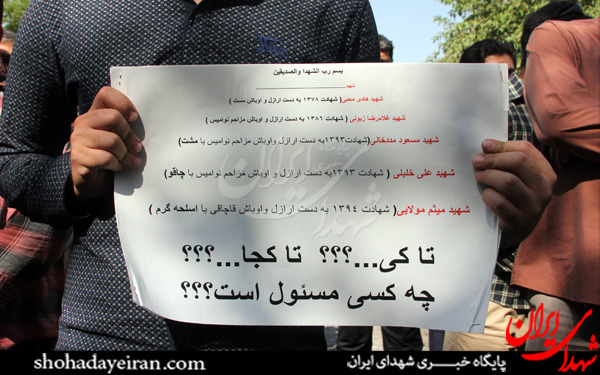 بسم رب الشهدا والصدیقین
شهید
شهید هادی محبی( شهادت ۱۳۷۸ به دست ارازل و اوباش مست )
شهید غلامرضا زوبونی ( شهادت ۱۳۸۱ به دست ارازل و اوباش مزاحم نوامیس )
شهید مسعود مددخانی(شهادت۱۳۹۳به دست ارازل واوباش مزاحم نوامیس با مشت)
شهید علی خلیلی ( شهادت ۱۳۹۳به دست ارازل و اوباش مزاحم نوامیس با چاقو)
شهید میثم مولایی( شهادت ۱۳۹۴ به دست ارازل واوباش قاچاقی با اسلحه گرم )
تا کی...؟؟؟ تا کجا...؟؟؟
چه کسی مسئول است؟؟؟
شهدای ایران
شهدای ایران
پایگاه خبری شهدای ایران
shohadayeiran.com